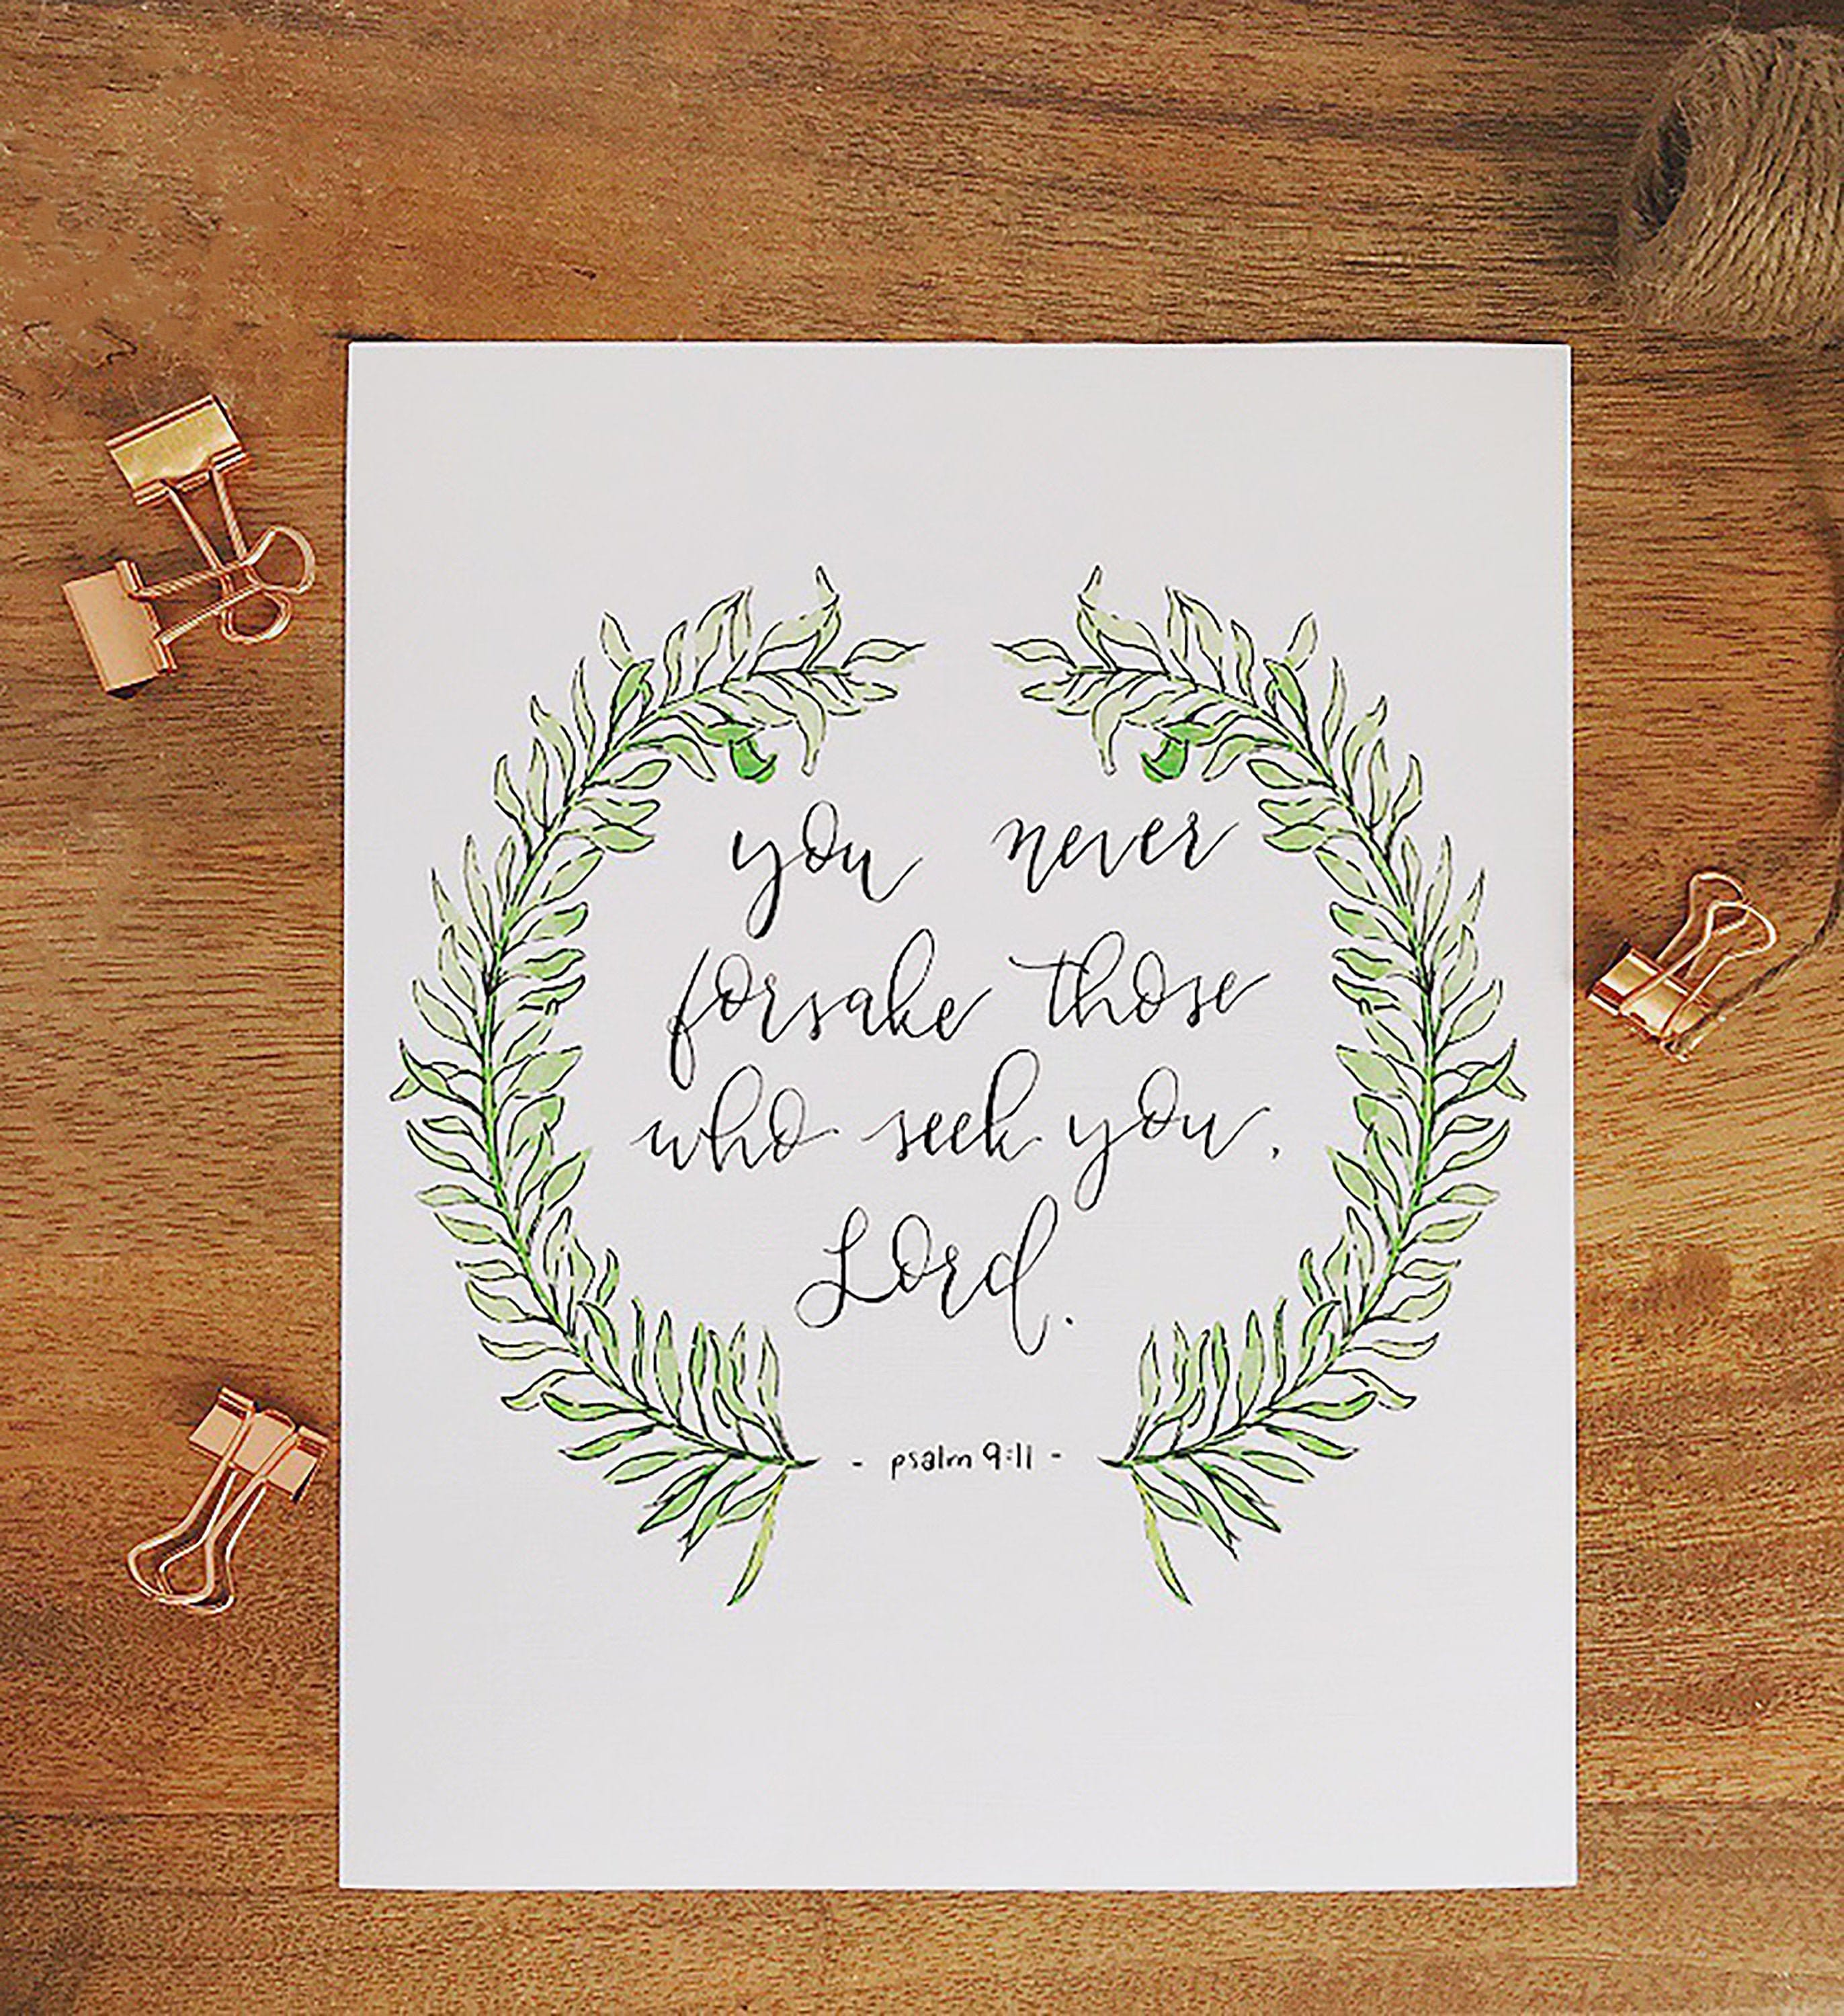 you never
forsake those
who seek you,
Lord.
- psalm 9:11 -